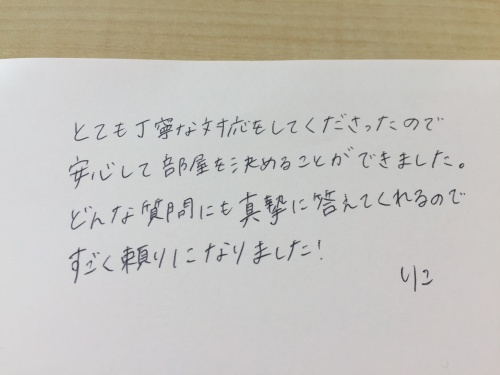 とても丁寧な対応をしてくださったので
安心して部屋を決めることができました。
どんな質問にも真摯に答えてくれるので
すごく頼りになりました!
りこ